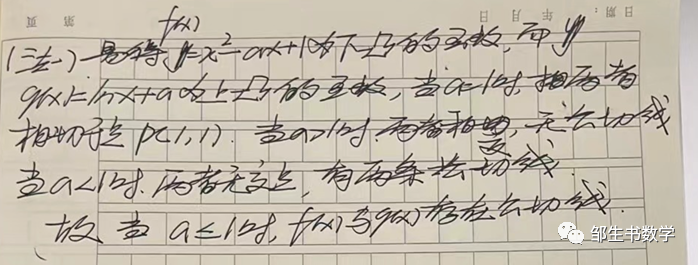 日期: 年 月 日
第 页
f(x)
(法一) 易得 y=x²-ax+1 为下凸的函数, 而 y
g(x)=lnx+a 为上凸的函数, 当 a=1时, 相两者
相切于点 P(1,1). 当a>1时, 两者相交, 无公切线
当a<1时, 两者无交点, 有两条公切线.
故 当 a≤1时, f(x)与g(x)存在公切线.
邹生书数学